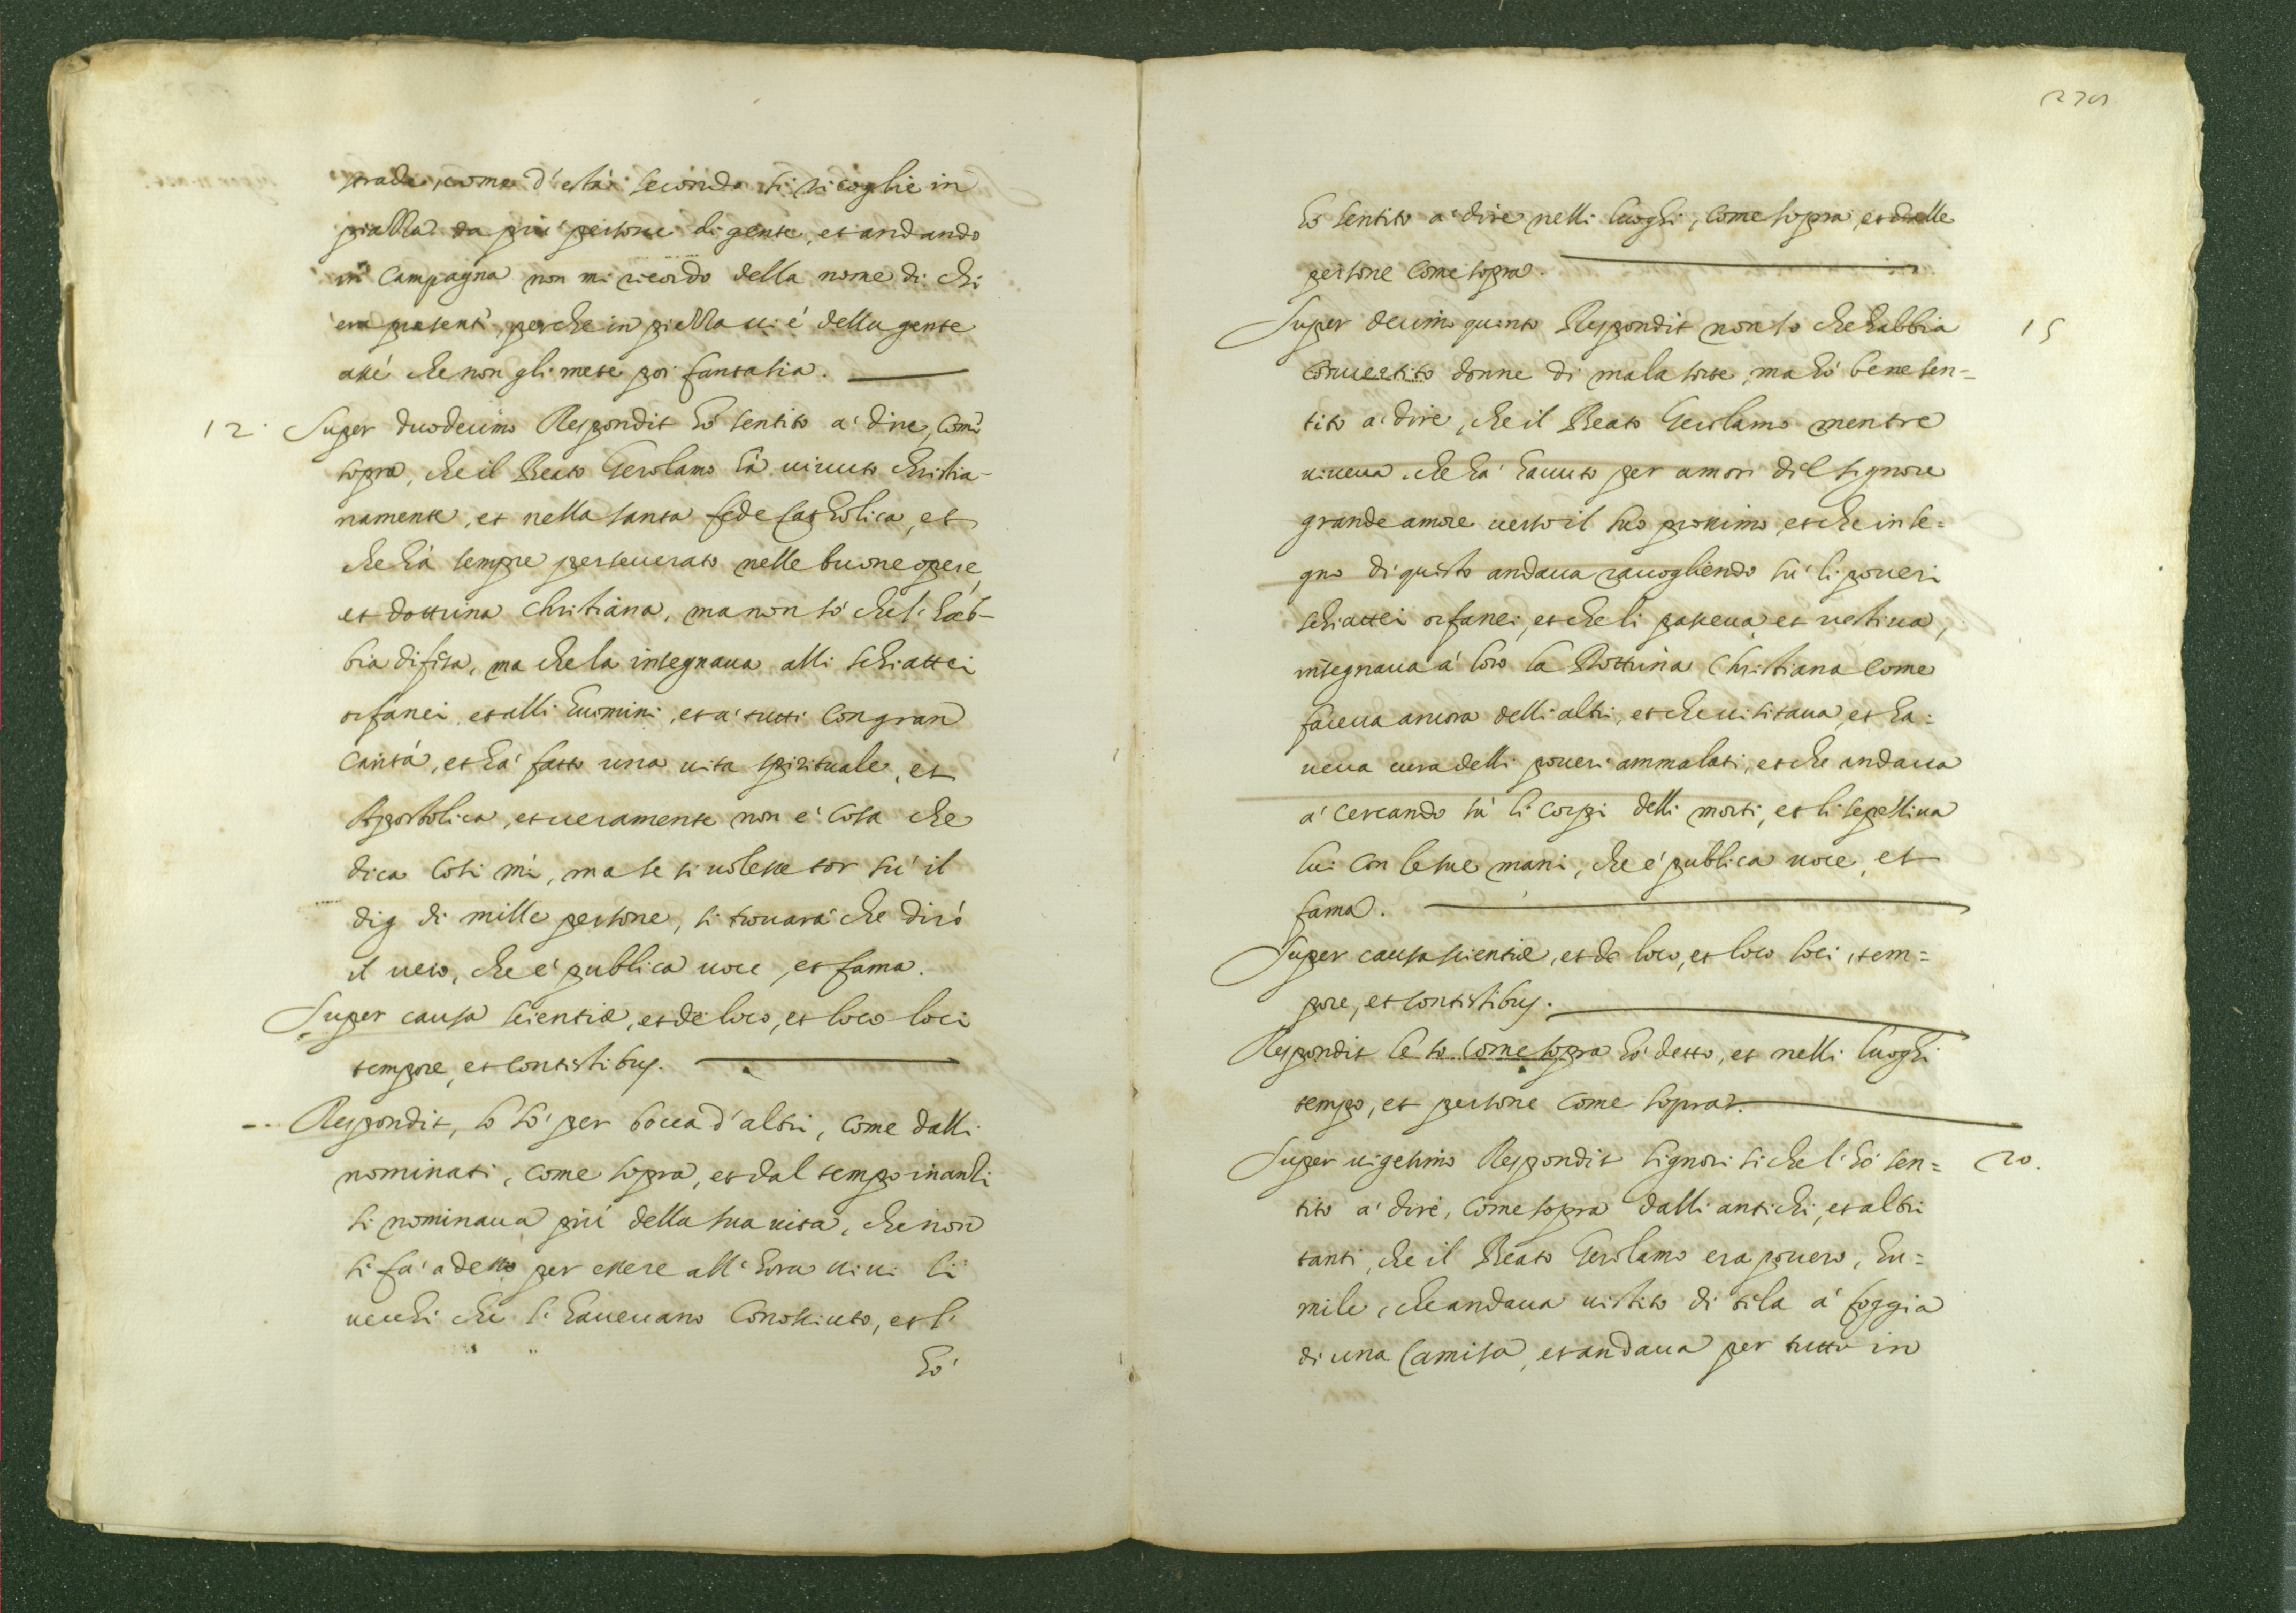 strade, come d'està secondo si ricoglie in
piazza da più persone di gente, et andando
in Campagna non mi ricordo della nome di chi
era presenti, perche in piazza ui é della gente
assé che non gli mete poi fantasia.
12. Super duodecimo Respondit hó sentito a' dire, come
sopra, che il Beato Gerolamo há uiuuto christia-
namente, et nella santa fede Catholica, et
che há sempre perseuerato nelle buone opere,
et dottrina Christiana, ma non só che l' hab-
bia difesa, ma che la insegnaua alli schiattei
orfanei, et alli huomini, et a' tutti con gran
carità, et há fatto una uita spirituale, et
Apostolica, et ueramente non é cosa che
dica cosi mi, ma se si uolesse tor sú il
dig di mille persone, si trouará che diró
il uero, che é publica uoce, et fama.
Super causa scientiæ, et de loco, et loco loci
tempore, et contestibus.
Respondit, lo só per bocca d'altri, come dalli
nominati, come sopra, et dal tempo inanzi
si nominaua piú della sua uita, che non
si fa' adesso per essere all' hora uiui li
uecchi che l' haueuano conosciuto, et l'
hó
hó sentito a' dire nelli luoghi, come sopra, et dalle
persone come sopra.
Super decimo quinto Respondit non so che habbia 15
conuertito donne di mala sorte, ma hó bene sen-
tito a' dire, che il Beato Gerolamo mentre
uiueua che há hauuto per amor dil signore
grande amore uerso il suo prossimo, et che in se-
gno di questo andaua racogliendo sú li poueri
schiattei orfanei, et che li pasceua et uestiua,
insegnaua a' loro la Dottrina Christiana come
faceua ancora delli altri, et che uisitaua, et ha-
ueua cura delli poueri ammalati, et che andaua
a' cercando sú li corpi delli morti, et li sepelliua
lui con le sue mani, che é publica uoce, et
fama.
Super causa scientiæ, et de loco, et loco loci, tem-
pore, et contestibus.
Respondit lo so come sopra hó detto, et nelli luoghi
tempo, et persone come sopra.
Super uigesimo Respondit signori si che l' hó sen- 20.
tito a' dire, come sopra dalli antichi, et altri
tanti, che il Beato Gerolamo era pouero, hu-
mile, che andaua uestito di tila a' foggia
di una Camisa, et andaua per tutto in